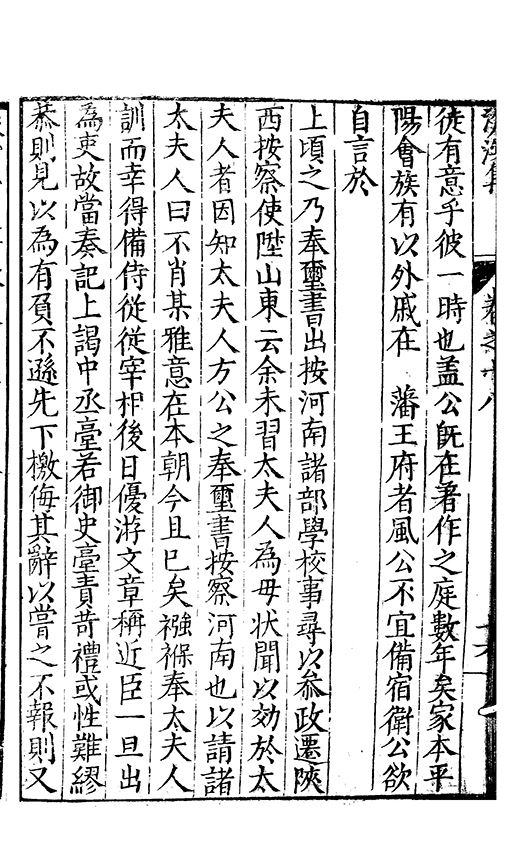 徒有意乎彼一時也盖公旣在著作之庭數年矣家本平
陽會族有以外戚在　藩王府者風公不宜備宿衛公欲
自言於
上頃之乃奉璽書出按河南諸部學校事尋以叅政遷陝
西按察使陞山東云余未習太夫人為母狀聞以効於太
夫人者因知太夫人方公之奉璽書按察河南也以請諸
太夫人曰不肖某雅意在本朝今且已矣襁褓奉太夫人
訓而幸得備侍從從宰相後日優游文章稱近臣一旦出
為吏故當奏記上謁中丞臺若御史臺責苛禮或性難繆
恭則見以為有負不遜先下檄侮其辭以嘗之不報則又
卷之十八